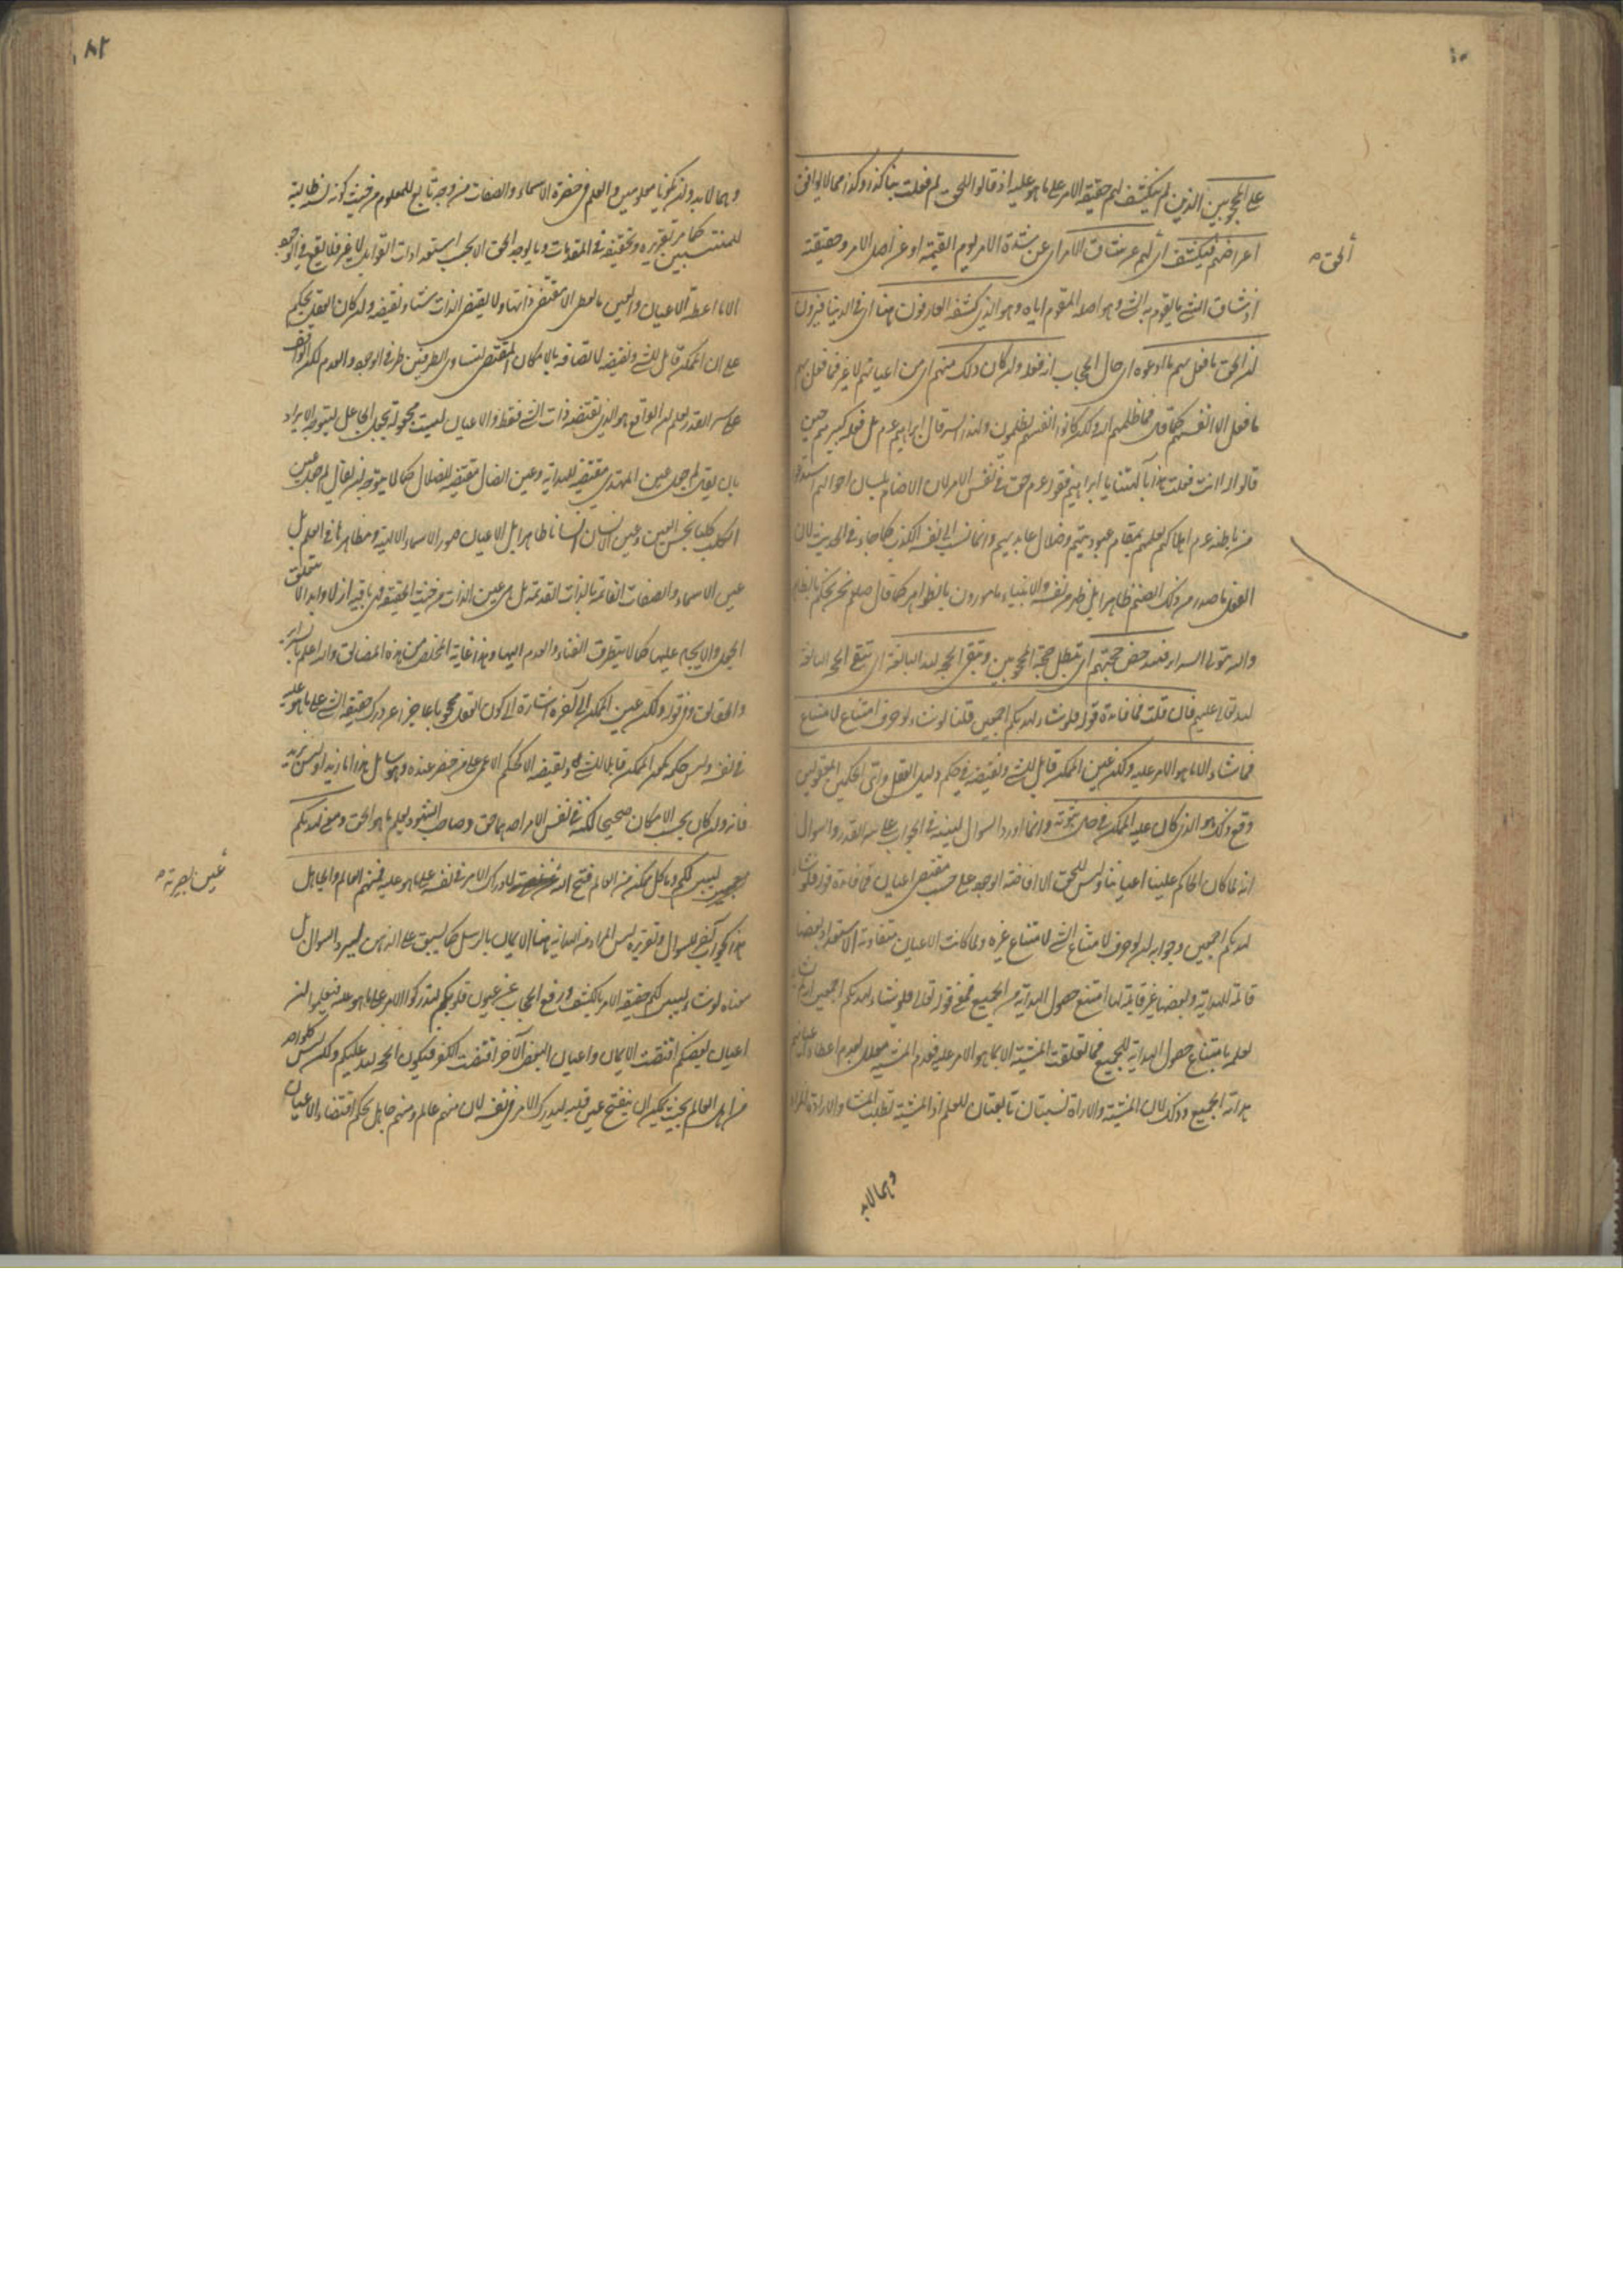 على المحجوبين الذين لم ينكشف لهم حقيقة الامر على ما هو عليه اذ قالوا للحق لم فعلت بنا كذا وكذا مما لا يوافق
اغراضهم فيكشف أى لهم عن ساق الامر اى عن شدة الامر يوم القيمة او عن اصل الامر وحقيقته
الحق
اذ ساق الشئ ما يقوم به الشئ وهو اصله المقوم اياه وهو الذى كشفه العارفون هنا اى فى الدنيا فيرون
ان الحق ما فعل بهم ما ادعوه اى حال الحجاب انه فعله وان كان ذلك منهم اى من اعيانهم لا غير فما فعل بهم
ما فعل الا انفسهم كما قال فما ظلمهم الله ولكن كانوا انفسهم يظلمون ولهذا السر قال ابراهيم عم بل فعله كبيرهم حين
قالوا أانت فعلت هذا بآلهتنا يا ابراهيم فقوله عم حق فى نفس الامر لان الاصنام بلسان احوالهم
من باطنه عم لعلمهم بمقام عبوديتهم وضلال عابديهم وانما نسب الى نفسه الكذب كما جاء فى الحديث لان
الفعل ما صدر من ذلك الصنم ظاهرا بل ظهر من نفسه والانبياء مامورون بالظواهر كما قال صلعم نحن نحكم بالظاهر
والله يتولى السرائر فتدحض حجتهم اى تبطل حجة المحجوبين وتبقى الحجة لله البالغة اى تبقى الحجة البالغة
لله تعالى عليهم فان قلت فما فائدة قوله فلو شاء لهديكم اجمعين قلنا لو شاء لو حرف امتناع لامتناع
فما شاء الا ما هو الامر عليه ولكن عين الممكن قابل للشئ ونقيضه فى حكم دليل العقل واى الحكمين المعقولين
وقع ذلك هو الذى كان عليه الممكن فى حال ثبوته وانما اورد السوال لينبه فى الجواب على سر القدر والسوال
انه لما كان الحاكم علينا اعياننا وليس للحق الا افاضة الوجود على حسب مقتضى اعياننا فما فائدة قوله فلو شاء
لهديكم اجمعين وجوابه ان لو حرف لامتناع الشئ لامتناع غيره ولما كانت الاعيان متفاوتة الاستعداد بعضها
قابلة للهداية وبعضها غير قابلة لها امتنع حصول الهداية من الجميع فمعنى قوله تعالى فلو شاء لهديكم اجمعين
لعلمه بامتناع حصول الهداية للجميع فما تعلقت المشية الا بما هو الامر عليه فعدم المشية معلل بعدم اعطاء اعيانهم
هداية الجميع وذلك لان المشية والارادة نسبتان تابعتان للعلم اذ المشية تطلب المشاء والارادة المراد
وهما لا بد
وهما لا بد وان يكونا معلومين والعلم فى حضرة الاسماء والصفات من وجه تابع للمعلوم من حيث كونه نسبة طالبة
للمنتسبين كما مر تقريره وتحقيقه فى المقدمات وما يوجد الحق الا بحسب استعدادات القوابل لا غير فلا يقع فى الوجود
الا ما اعطته الاعيان والعين ما تعطى الا مقتضى ذاتها ولا يقتضى الذات شيئا ونقيضه وان كان العقل يحكم
على ان الممكن قابل للشئ ونقيضه لاتصافه بالامكان المقتضى لتساوى الطرفين طرفى الوجود والعدم لكن الواقف
على سر القدر يعلم ان الواقع هو الذى تقتضيه ذات الشئ فقط والاعيان ليست مجعولة بجعل الجاعل ليتوجه الايراد
بان يقال لم جعل عين المهتدى مقتضية للهداية وعين الضال مقتضية للضلال كما لا يتوجه ان يقال لم جعل عين
الكلب كلبا نجس العين وعين الانسان انسانا طاهرا بل الاعيان صور الاسماء الالهية ومظاهرها فى العلم بل
عين الاسماء والصفات القائمة بالذات القديمة بل هى عين الذات من حيث الحقيقة فهى باقية ازلا وابدا لا يتعلق
الجعل والايجاد عليها كما لا يتطرق الفناء والعدم اليها وهذا غاية المخلص من هذه المضائق والله اعلم باسرار
والحقائق وفى قوله ولكن عين الممكن الى آخره اشارة الى كون العقل محجوبا عاجزا عن ادراك حقيقة الشئ على ما هو عليه
فى نفسه وليس حكمه بكون الممكن قابلا للشئ ونقيضه الا كحكم الاعمى على من حضر عنده وهو ساكت هذا اما زيد او ليس بزيد
فانه وان كان بحسب الامكان صحيحا لكنه فى نفس الامر احدهما حق وصاحب الشهود يعلم ما هو الحق ومعنى لهديكم
ليبين لكم وما كل ممكن من العالم فتح الله لادراك الامر فى نفسه على ما هو عليه فمنهم العالم والجاهل
عين بصيرته
هذا جواب آخر للسوال وتقريره ليس المراد من الهداية هنا الايمان بالرسل كما يسبق على الذهن ليرد السوال بل
معناه لو شاء ليبين لكم حقيقة الامر بالكشف ورفع الحجاب عن عيون قلوبكم لتدركوا الامر على ما هو عليه فتعلموا ان
اعيان بعضكم اقتضت الايمان واعيان البعض الآخر اقتضت الكفر فيكون الحجة لله عليكم ولكن ليس كل واحد
من اهل العالم بحيث يمكن ان ينفتح عين قلبه ليدرك الامر فى نفسه لان منهم عالم ومنهم جاهل بحكم اقتضاء الاعيان